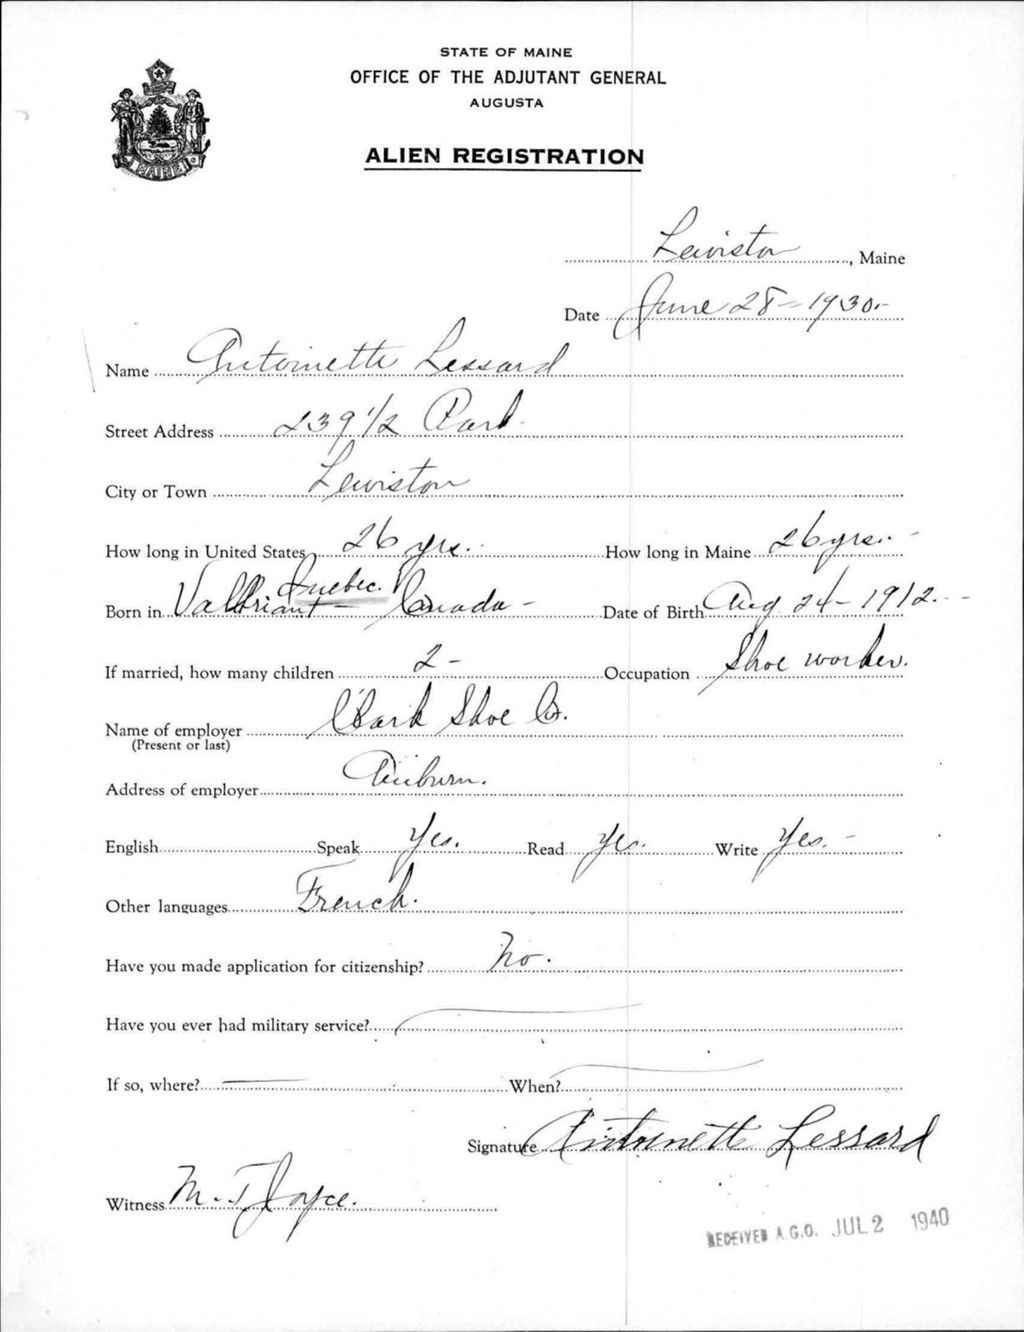 STATE OF MAINE
OFFICE OF THE ADJUTANT GENERAL
AUGUSTA
ALIEN REGISTRATION
MAINE
Lewiston, Maine
Date June 28 - 1930.
Name Antoinette Lessard
Street Address 239 1/2 Park.
City or Town Lewiston
How long in United States 26 yrs. How long in Maine 26 yrs.
Quebec.
Born in Canada - Date of Birth Aug 24 - 1912.
If married, how many children 2 - Occupation Shoe worker.
Name of employer Clark Shoe Co.
(Present or last)
Address of employer Auburn.
English Speak Yes. Read Yes. Write Yes. -
Other languages French.
Have you made application for citizenship? No.
Have you ever had military service?
If so, where? When?
Signature Antoinette Lessard
Witness M. T. Joyce.
RECEIVED A.G.O. JUL 2 1940